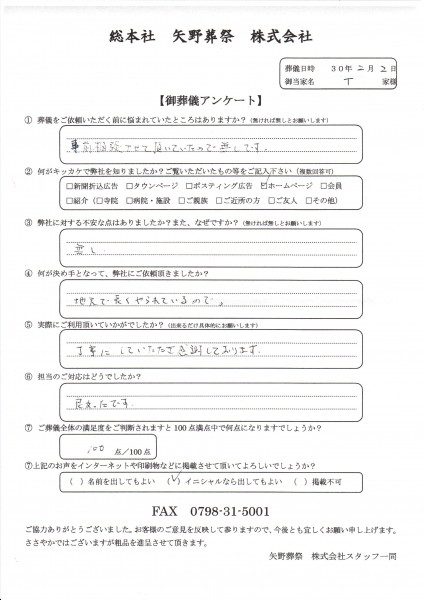 総本社 矢野葬祭 株式会社
葬儀日時 30年2月2日
御当家名 T 家様
【御葬儀アンケート】
① 葬儀をご依頼いただく前に悩まれていたところはありますか？（無ければ無しとお願いします）
事前相談させて頂いていたので無しです。
② 何がキッカケで弊社を知りましたか？ご覧いただいたもの等をご記入下さい（複数回答可）
□新聞折込広告 □タウンページ □ポスティング広告 ☑ホームページ □会員
□紹介（□寺院 □病院・施設 □ご親族 □ご近所の方 □ご友人 □その他）
③ 弊社に対する不安な点はありましたか？また、なぜですか？（無ければ無しとお願いします）
無し
④ 何が決め手となって、弊社にご依頼頂きましたか？
地元で長くやられているので。
⑤ 実際にご利用頂いていかがでしたか？（出来るだけ具体的にお願いします）
丁寧にしていただき感謝しております。
⑥ 担当のご対応はどうでしたか？
良かったです。
⑦ ご葬儀全体の満足度をご判断されますと100点満点中で何点になりますでしょうか？
100 点／100点
⑦上記のお声をインターネットや印刷物などに掲載させて頂いてよろしいでしょうか？
（ ）名前を出してもよい （✓）イニシャルなら出してもよい （ ）掲載不可
FAX 0798-31-5001
ご協力ありがとうございました。お客様のご意見を反映して参りますので、今後とも宜しくお願い申し上げます。
ささやかではございますが粗品を進呈させて頂きます。
矢野葬祭 株式会社スタッフ一同